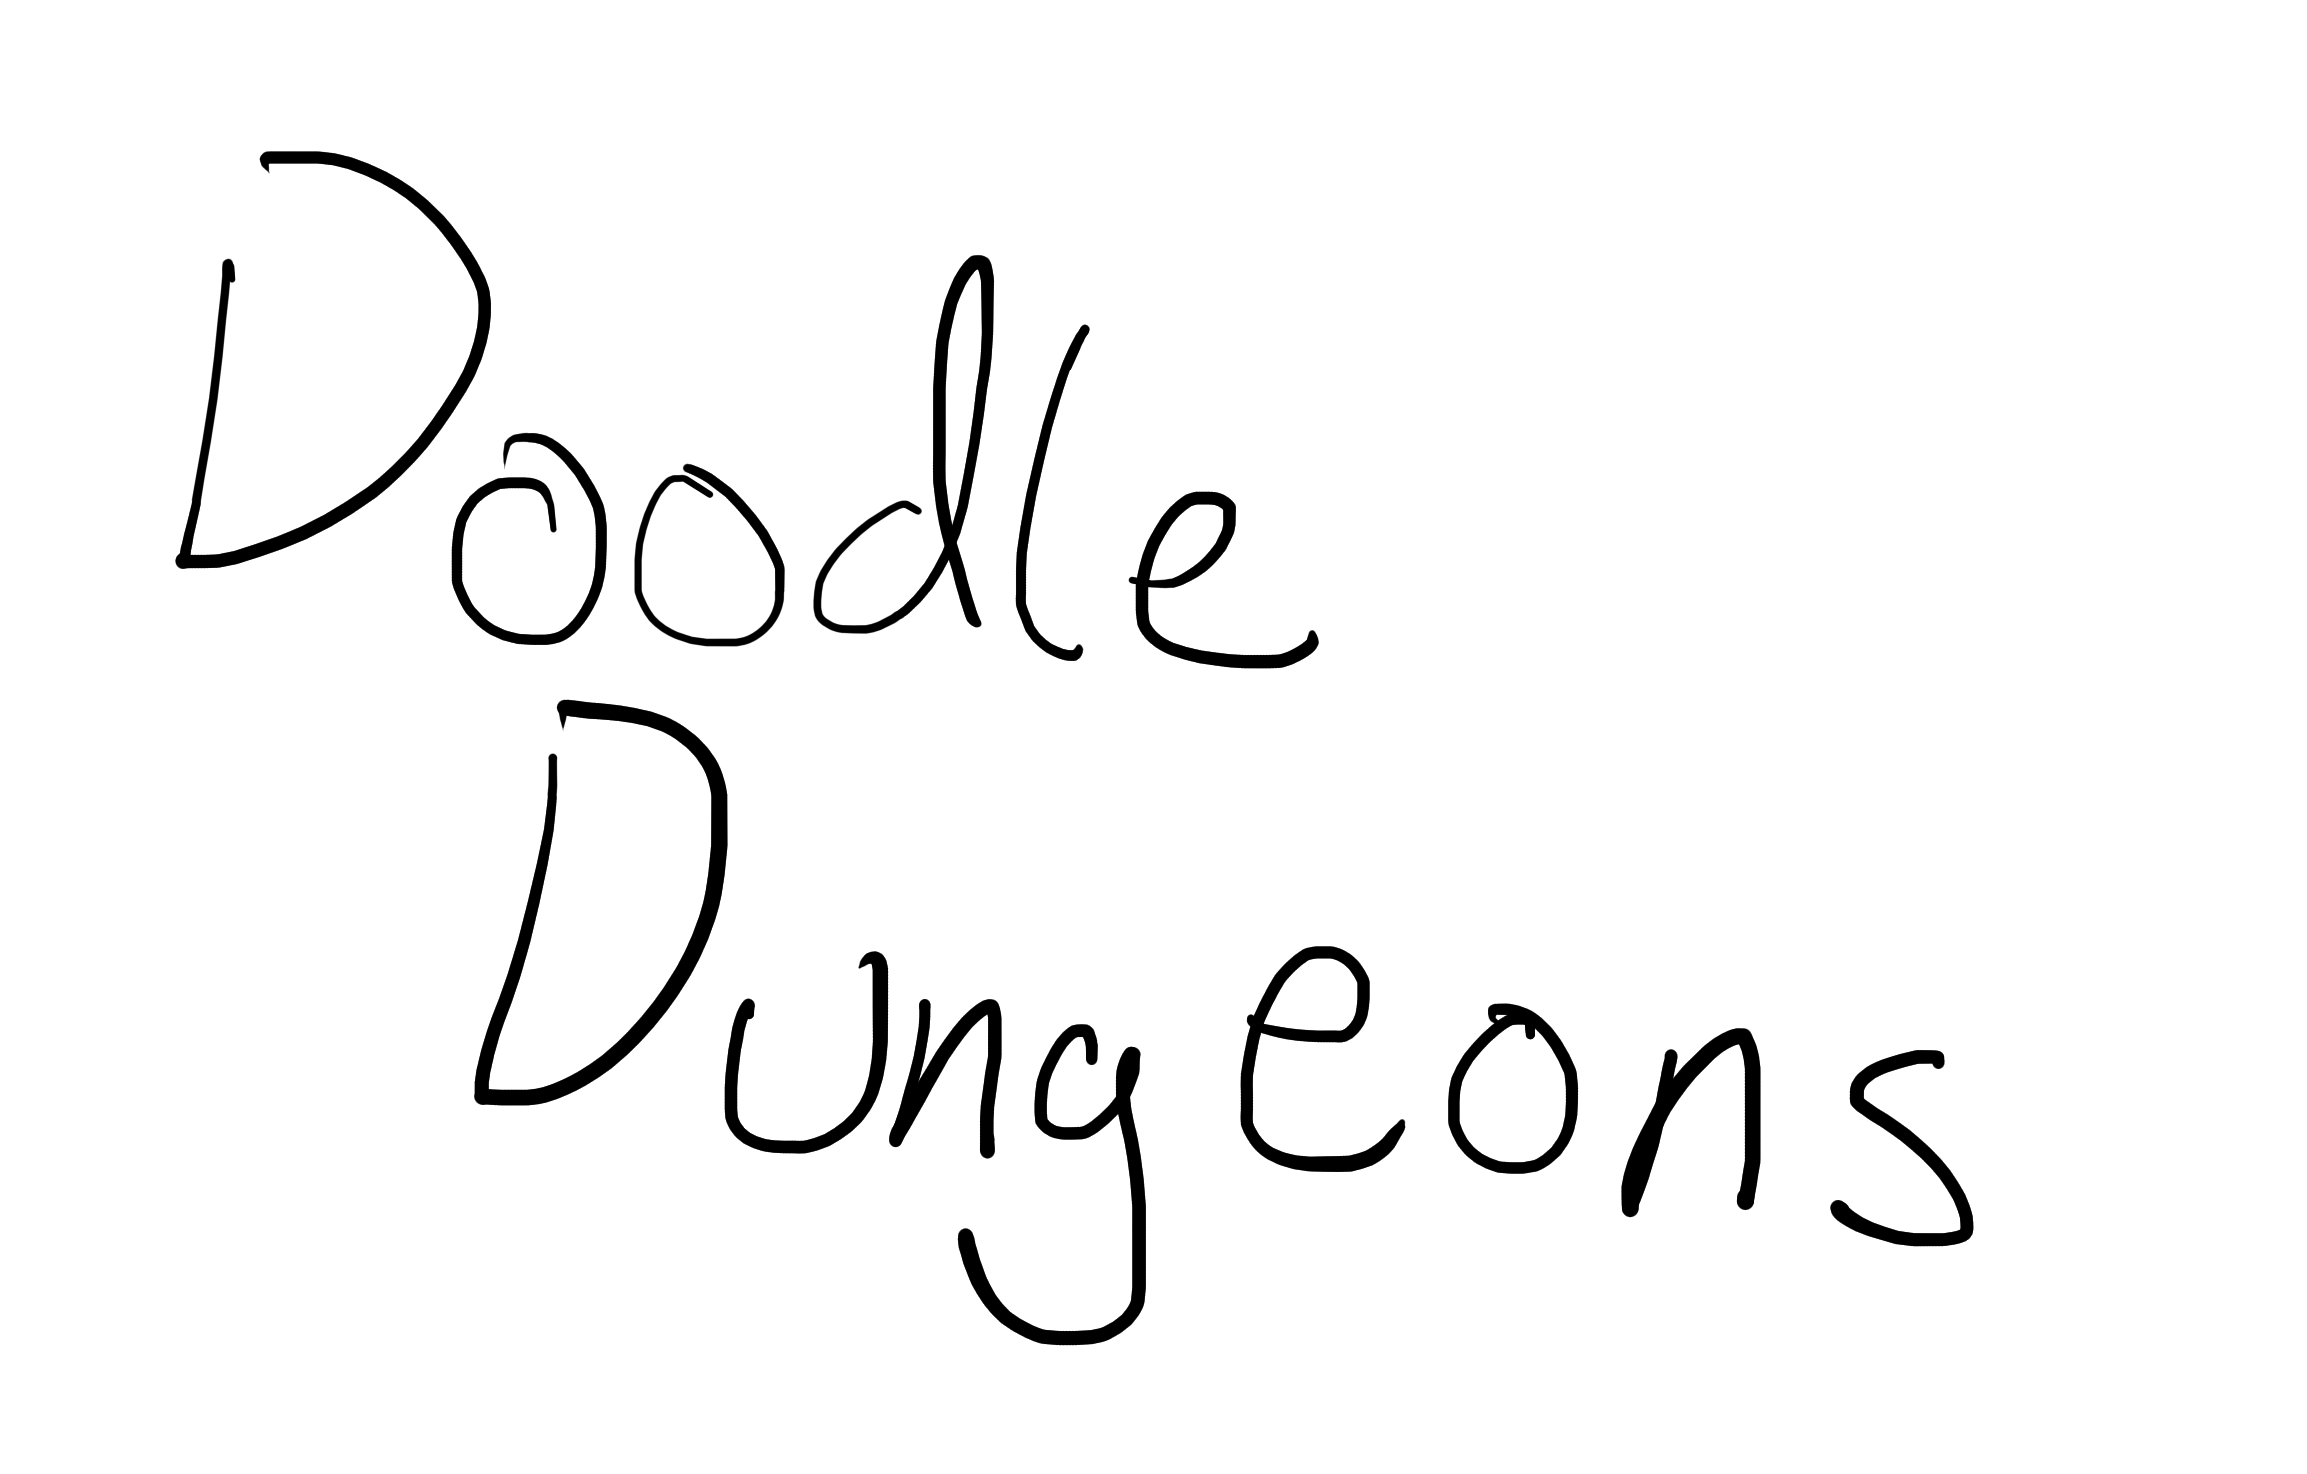 Doodle
Dungeons